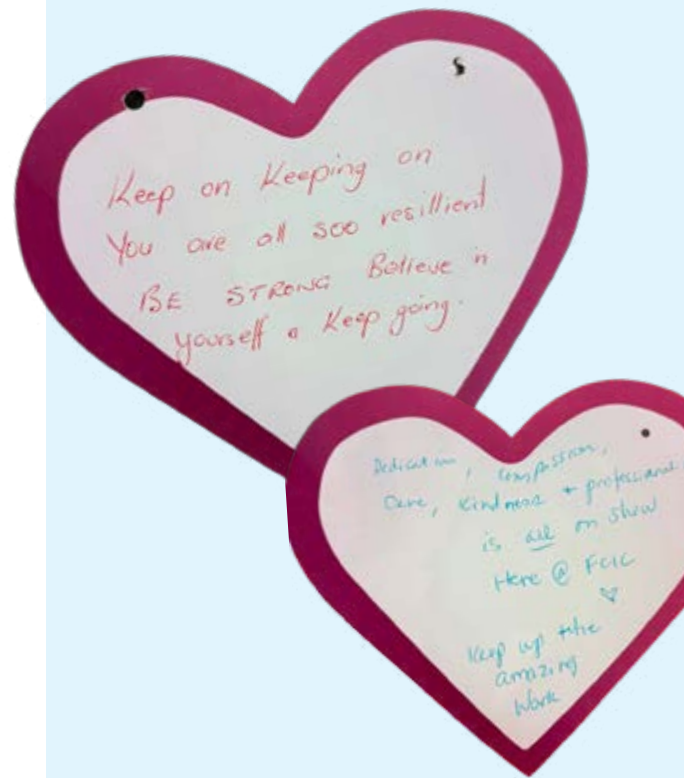 Keep on Keeping on
You are all soo resillient
BE STRONG Believe in
yourself & Keep going.
Dedication, Compassion,
Care, Kindness + professional
is all on show
Here @ FCIC
Keep up the
amazing
Work